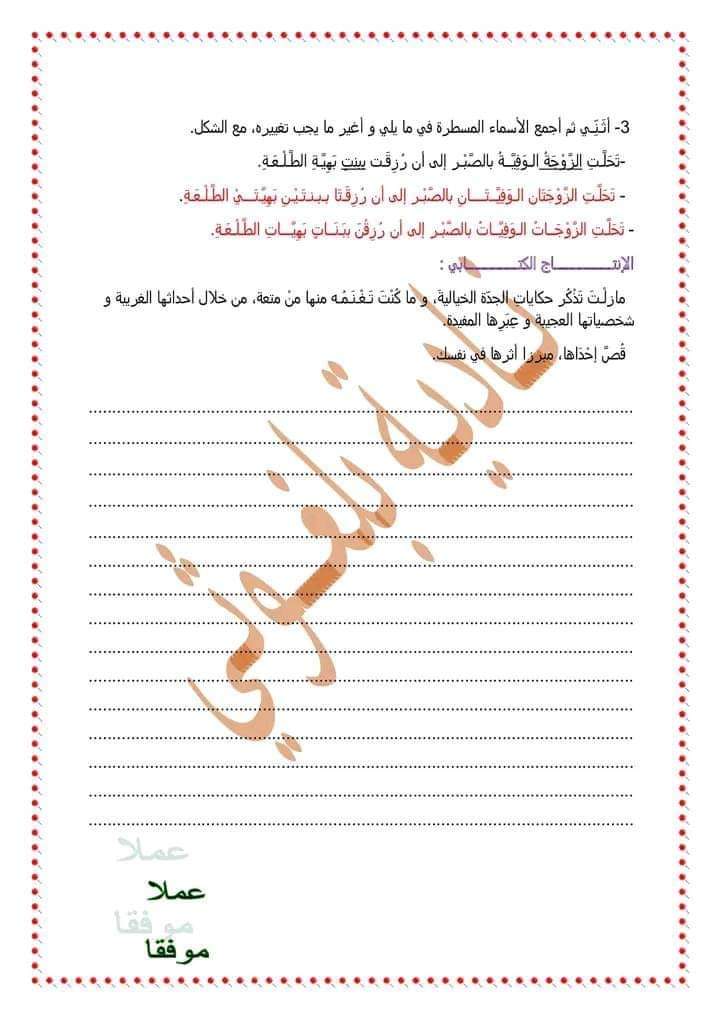 3- أثَـنِّـي ثم أجمع الأسماء المسطرة في ما يلي و أغير ما يجب تغييره، مع الشكل.
-تَحَلَّتِ الزَّوْجَةُ الـوَفِيَّـةُ بالصَّبْـر إلى أن رُزِقَـت ببِنتٍ بَهِيَّـةِ الطَّـلْـعَةِ.
- تَحَلَّتِ الزَّوْجَتَان الـوَفِيَّــتَـــانِ بالصَّبْـر إلى أن رُزِقَـتَا بـبـنـتَـيْـنِ بَهِيَّـتَـــيْ الطَّـلْـعَةِ.
- تَحَلَّتِ الزَّوْجَــاتُ الـوَفِيَّــاتُ بالصَّبْـر إلى أن رُزِقْـنَ ببَـنَــاتٍ بَهِيَّـــاتِ الطَّـلْـعَةِ.
الإنتـــــــــــــاج الكتـــــــــــابي :
مازلْـتَ تَذْكُر حكاياتِ الجدّة الخياليةَ، و ما كُنْتَ تَـغْـنَـمُـه منها منْ متعة، من خلال أحداثها الغريبة و
شخصياتها العجيبة و عِبَرِها المفيدة.
قُصَّ إحْدَاها، مبرزا أثرها في نفسك.
نادية بلغوثي
عملا
موفقا